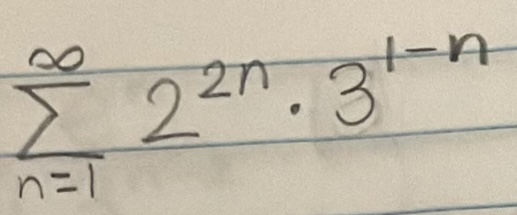 ∑_{n=1}^{∞} 2^{2n} · 3^{1-n}